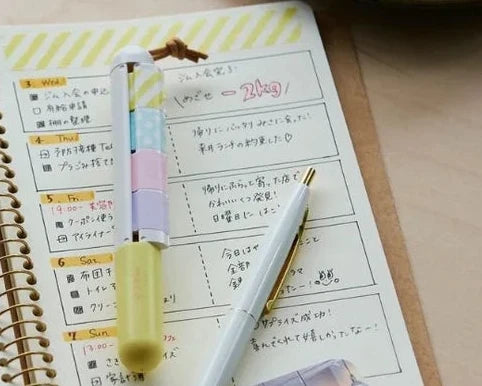 3. Wed
ジム入会の申込
有給申請
棚の整理
ジム入会完了!
めざせ -2kg
4 Thu
予防接種 Tel
プラごみ捨て
帰りにバッタリ みさに会った!
来月ランチの約束した♡
5. Fri
19:00-
クーポン使う
アイライナー
帰りにふらっと寄った店で
かわいいくつ発見!
日曜日に
6 Sat
布団干
トイレ
クリーニ
今日は
全部
7 Sun
13:00-
サプライズ成功!
喜んでくれて嬉しかったなー!